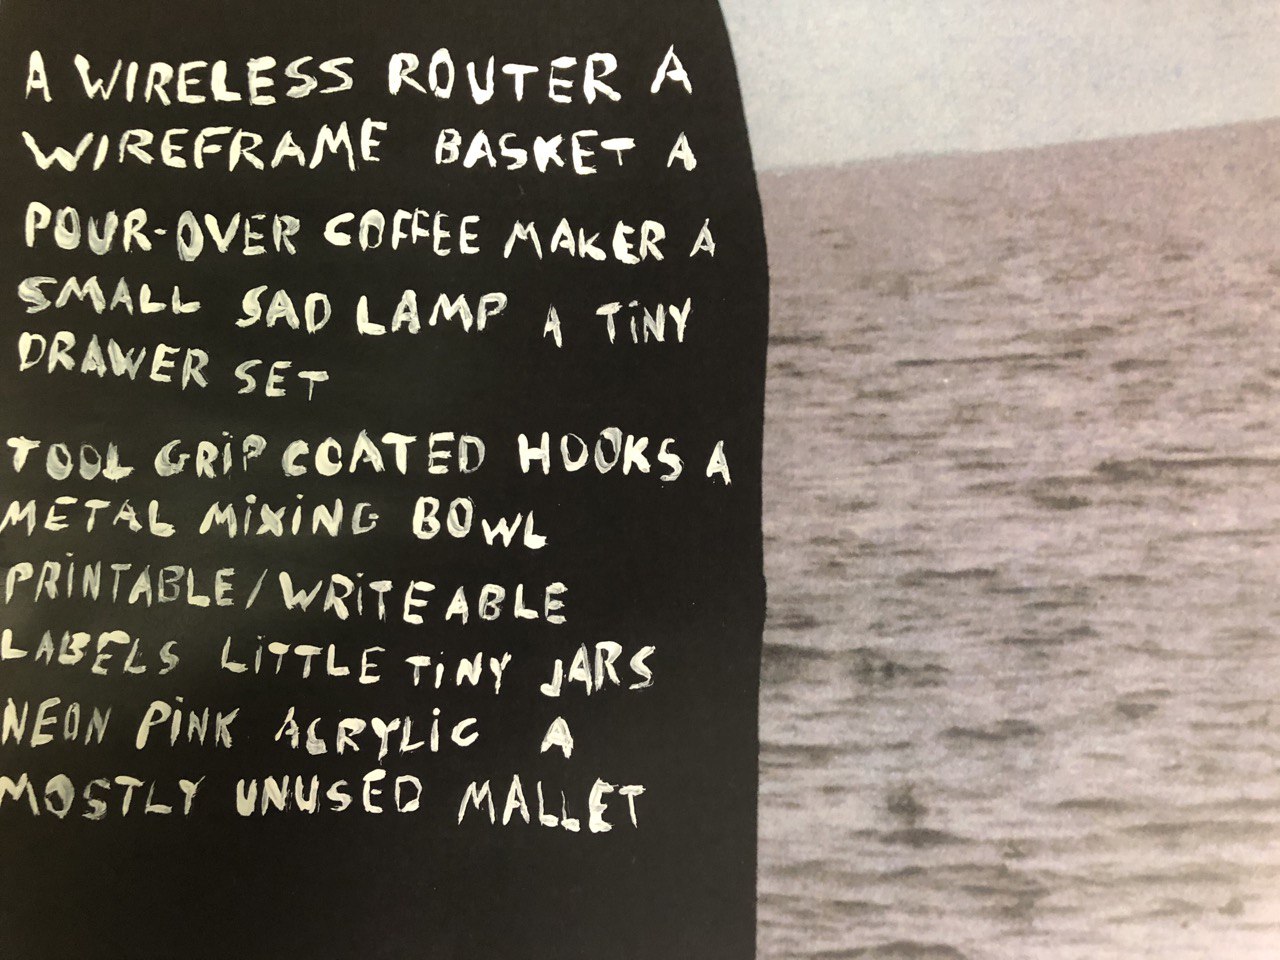 A WIRELESS ROUTER A
WIREFRAME BASKET A
POUR-OVER COFFEE MAKER A
SMALL SAD LAMP A TiNY
DRAWER SET
TOOL GRiP COATED HOOKS A
METAL MiXiNG BOWL
PRiNTABLE/WRiTEABLE
LABELS LiTTLE TiNY JARS
NEON PiNK ACRYLiC A
MOSTLY UNUSED MALLET